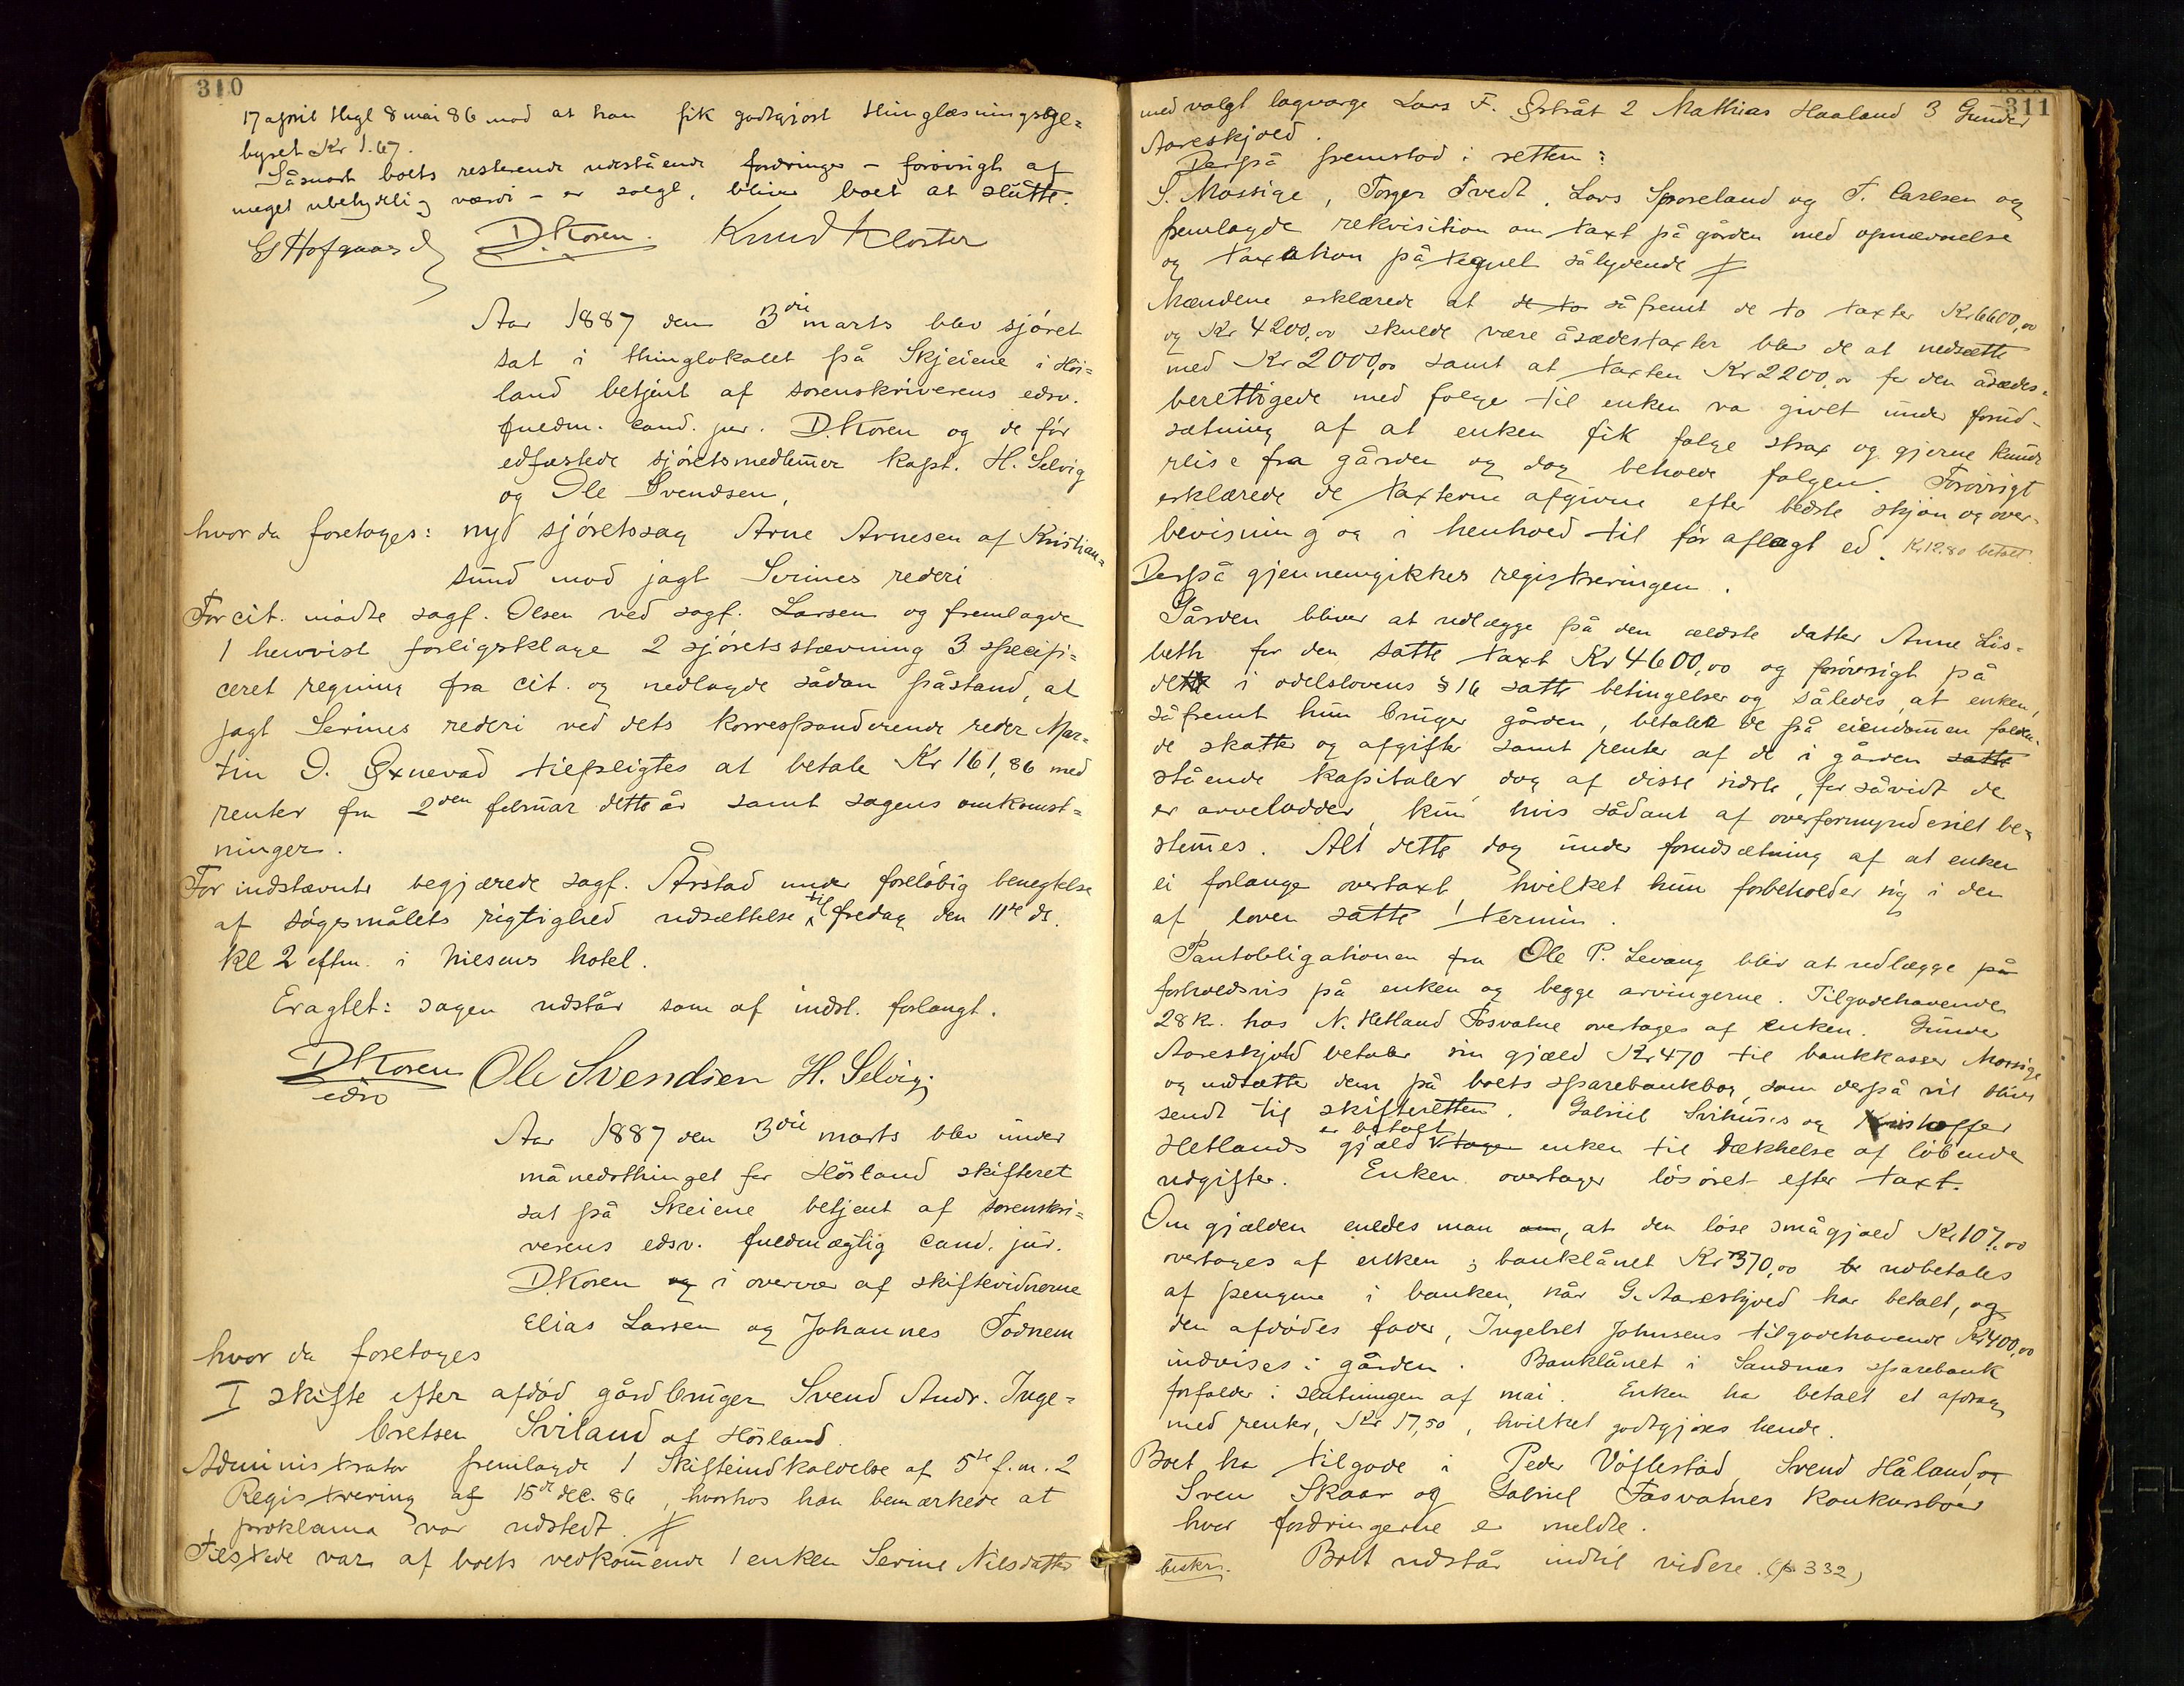 310
17 april thgl 8 mai 86 mod at han fik godtgjort thinglæsningsge=
byret Kr 1.67.
Såsnart boets resterende udestående fordringer – forövrigt af
meget ubetydelig værdi – er solgt, bliver boet at slutte.
G Hofgaard D. Koren. Knud Kloster
Aar 1887 den 3die marts blev sjöret
sat i thinglokalet på Skjeiene i Höi=
land betjent af sorenskriverens edsv.
fuldm. cand. jur. D. Koren og de för
edfæstede sjöretsmedlemmer kapt. H. Selvig
og Ole Svendsen,
hvor da foretoges: ny sjöretssag Arne Arnesen af Kristian=
sund mod jagt Serines rederi
For cit. mödte sagf. Olsen ved sagf. Larsen og fremlagde
1 henvist forligsklage 2 sjöretsstævning 3 specifi=
ceret regning fra cit. og nedlagde sådan påstand, at
jagt Serines rederi ved dets korresponderende reder Mar=
tin D. Öxnevad tilpligtes at betale Kr 161,86 med
renter fra 2den februar dette år samt sagens omkomst=
ninger.
For indstævnte begjærede sagf. Årstad under foreløbig benegtelse
af sögsmålets rigtighed udsættelse til fredag den 11te ds.
kl 2 eftm. i Nilsens hotel.
Eragtet: sagen udstår som af indst. forlangt.
D Koren Ole Svendsen H. Selvig
edsv
Aar 1887 den 3die marts blev under
månedsthinget for Höiland skifteret
sat på Skeiene betjent af sorenskri=
verens edsv. fuldmægtig cand. jur.
D. Koren og i overvær af skiftevidnerne
Elias Larsen og Johannes Todnem
hvor da foretoges
I skifte efter afdöd gårdbruger Svend Andr. Inge=
bretsen Sviland af Höiland.
Administrator fremlagde 1 Skifteindkaldelse af 5te f.m. 2
Registrering af 15de dec. 86, hvorhos han bemærkede at
proklama var udstedt.
Tilstede var af boets vedkommende 1 enken Serine Nilsdatter
311
med valgt lagværge Lars F. Östråt 2 Mathias Haaland 3 Gunder
Aareskjold.
Derpå fremstod i retten:
S. Mossige, Torger Tvedt, Lars Sporeland og T. Carlsen og
fremlagde rekvisition om taxt på gården med opnævnelse
og taxation påtegnet sålydende
Mændene erklærede at de to såfremt de to taxter Kr 6600,00
og Kr 4200,00 skulde være åsædestaxter blev de at nedsætte
med Kr 2000,00 samt at taxten Kr 2200,00 for den åsædes=
berettigede med folge til enken va givet under forud=
sætning af at enken fik folge strax og gjerne kunde
reise fra gården og dog beholde folgen. Forövrigt
erklærede de taxterne afgivne efter bedste skjön og over=
bevisning og i henhold til för aflagt ed. Kr 12.80 betalt
Derpå gjennemgikkes registreringen.
Gården bliver at udlægge på den ældste datter Anne Lis=
beth for den satte taxt Kr 4600,00 og forövrigt på
dette i odelslovens § 16 satte betingelser og således, at enken,
såfremt hun bruger gården, betaler de på eiendommen falden=
de skatter og afgifter samt renter af de i gården satte
stående kapitaler, dog af disse sidste, for såvidt de
er arvelodder, kun hvis sådant af overformynderiet be=
stemmes. Alt dette dog under forudsætning af at enken
ei forlange overtaxt, hvilket hun forbeholder sig i den
af loven satte termin.
Pantobligationen fra Ole P. Levang bliv at udlægge på
forholdsvis på enken og begge arvingerne. Tilgodehavende
28 kr. hos N. Hetland Fosvatne overtages af enken. Gunder
Aareskjold betaler sin gjæld Kr 470 til bankkasser Mossige
og indsætter dem på boets sparebankbog, som derpå vil blive
sendt til skifteretten. Gabriel Svihus's og Kristoffer
Hetlands gjæld er betalt tager enken til dækkelse af löbende
udgifter. Enken overtager lösöret efter taxt.
Om gjælden enedes man om, at den löse smågjæld Kr 107,00
overtages af enken; banklånet Kr 370,00 be udbetales
af pengene i banken, når G. Aareskjold har betalt, og
den afdödes fader, Ingebret Johnsens tilgodehavende Kr 400,00
indvises i gården. Banklånet i Sandnæs sparebank
forfalder i slutningen af mai. Enken har betalt et afdrag
med renter, Kr 17,50, hvilket godtgjöres hende.
Boet ha tilgode i Peder Völlestad, Svend Håland, og
Sven Skaar og Gabriel Fosvatnes konkursboer
hvor fordringerne er meldte.
beskr. Boet udstår indtil videre. (p 332)